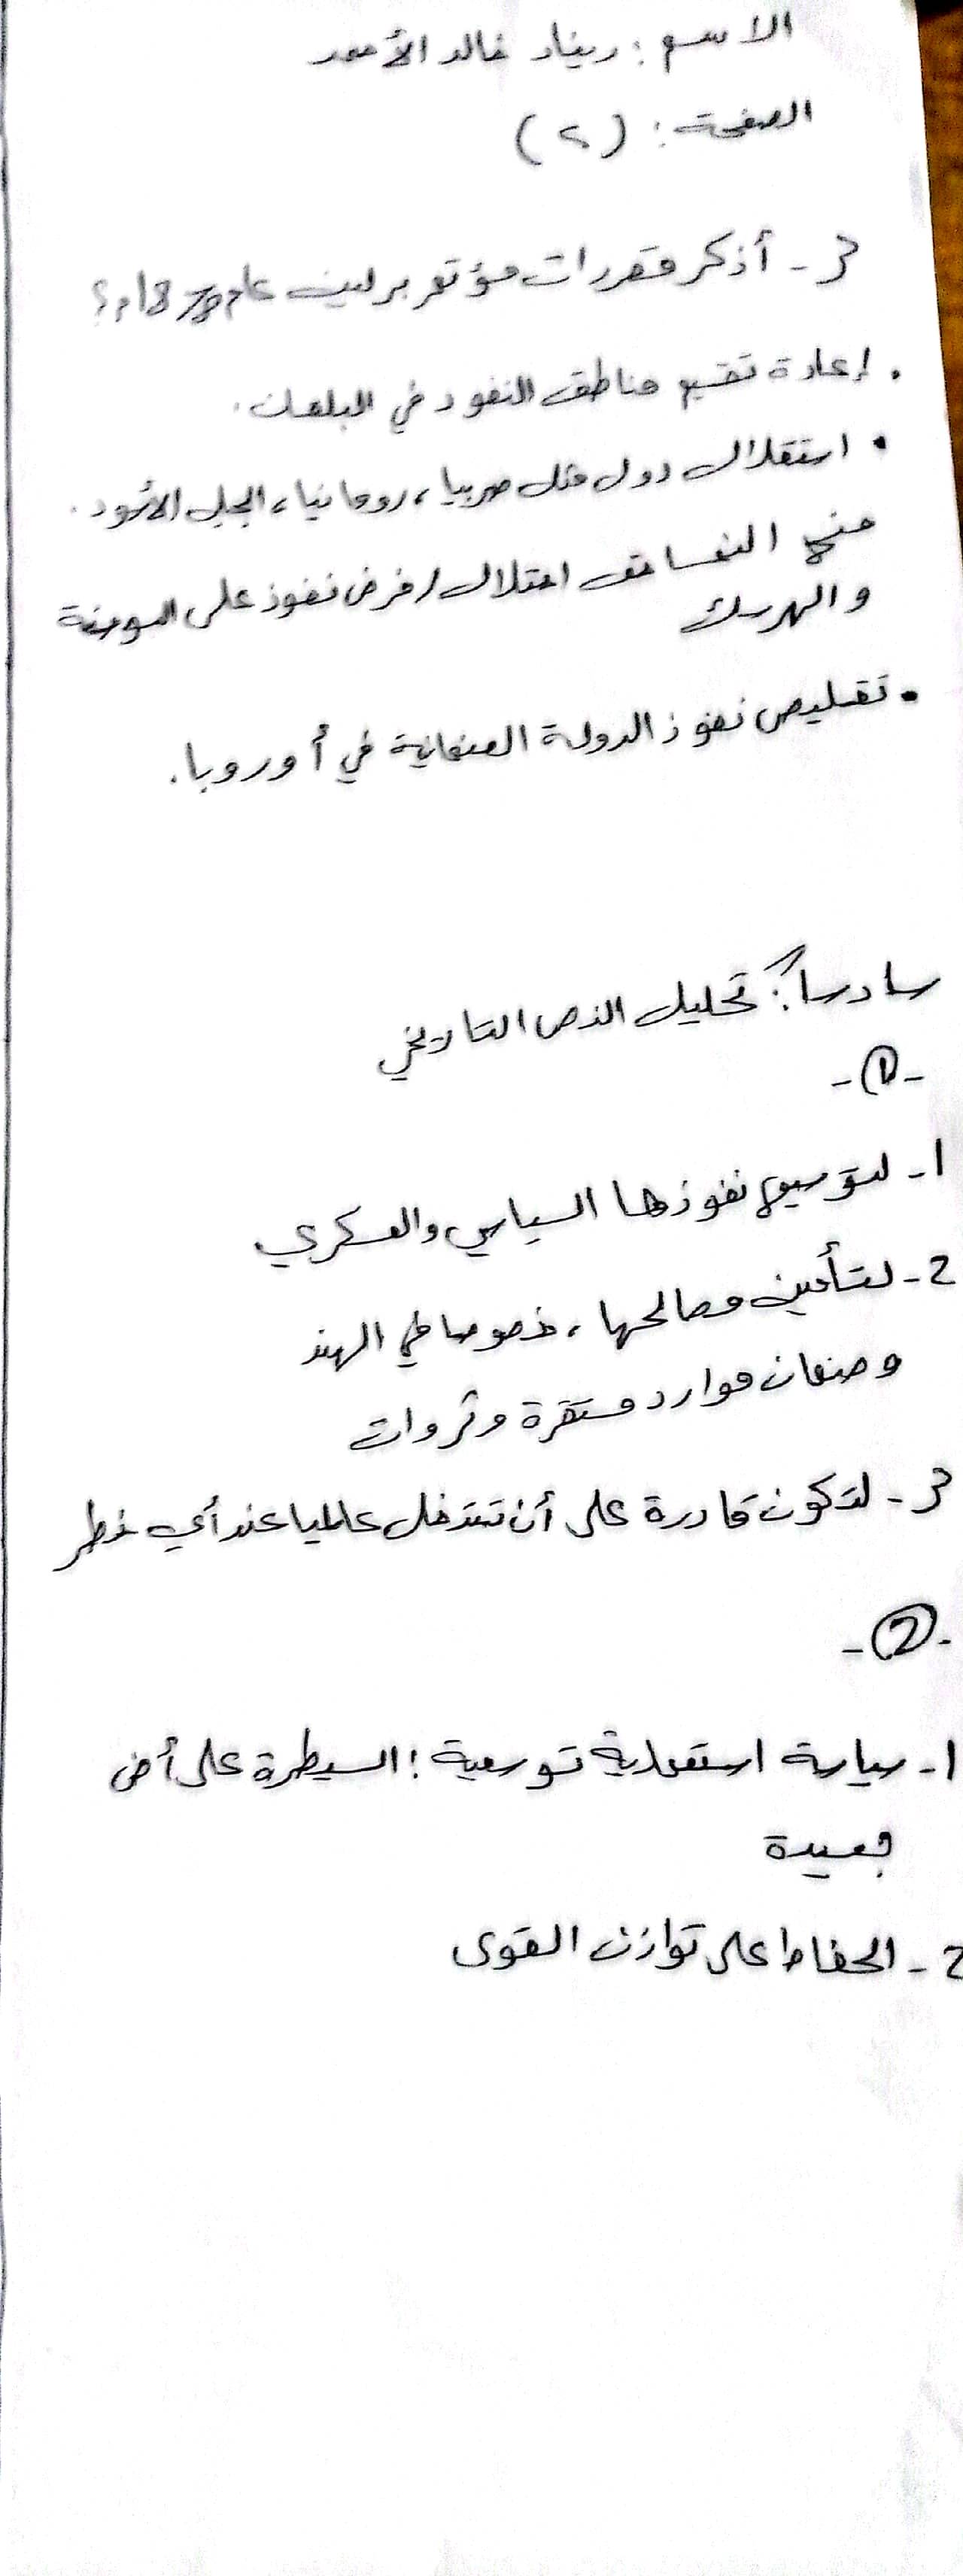 الاسم : ريناد خالد الأحمد
الصفحة : (٢)
3 - أذكر مقررات مؤتمر برلين عام 1878م؟
. إعادة تقسيم مناطق النفوذ في البلقان .
• استقلال دول مثل صربيا ، رومانيا ، الجبل الأسود .
منح النمسا حق احتلال / فرض نفوذ على البوسنة
والهرسك
• تقليص نفوذ الدولة العثمانية في أوروبا .
سادساً : تحليل النص التاريخي
- ① -
1 - لتوسيع نفوذها السياسي والعسكري
2 - لتأمين مصالحها ، خصوصا في الهند
وضمان موارد مستقرة وثروات
3 - لتكون قادرة على أن تتدخل عالميا عند أي خطر
- ② -
1 - سياسة استعمارية توسعية : السيطرة على أض
بعيدة
2 - الحفاظ على توازن القوى